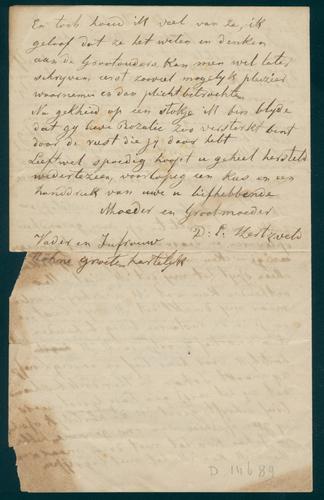 En toch houd ik veel van ze, ik
geloof dat ze het weten en denken
aan de Grootouders kan men wel later
schrijven eerst zooveel mogelijk plezier
waarnemen en dan plicht betrachten
Nu gekheid op een stokje ik ben blijde
dat gy lieve Rozalie zoo versterkt bent
door de rust die jy daar hebt
Liefwel spoedig hoop ik u geheel hersteld
weder te zien, voorlopig een kus en een
handdruk van uwe u liefhebbende
Moeder en Grootmoeder
D. E. Hertzveld
Vader en Jufrouw
groeten hartelijk
D 146 89